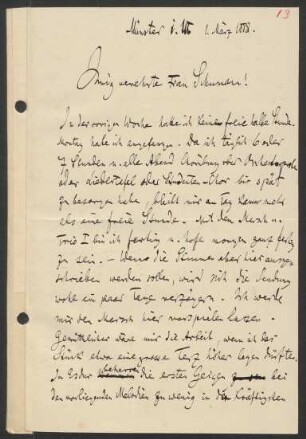 13
Münster i. W 1. März 1888.
Innig verehrte Frau Schumann!
In der vorigen Woche hatte ich keine freie halbe Stunde.
Montag habe ich angefangen. Da ich täglich 6 oder
7 Stunden u. alle Abend Chorübung oder Orchesterprobe
oder Liedertafel oder Studenten-Chor bis spät
zu besorgen habe, bleibt mir am Tag kaum mehr
als eine freie Stunde. Mit dem Marsch u.
Trio I bin ich fertig u. hoffe morgen ganz fertig
zu sein. – Wenn die Stimmen aber hier ausge-
schrieben werden sollen, wird sich die Sendung
wohl ein paar Tage verzögern. Ich werde
mir den Marsch hier vorspielen lassen.
Gemüthlicher wäre mir die Arbeit, wenn ich das
Stück etwa eine grosse Terz höher legen dürfte.
In Esdur die ersten Geigen bei
den vorliegenden Melodien zu wenig in den kräftigsten